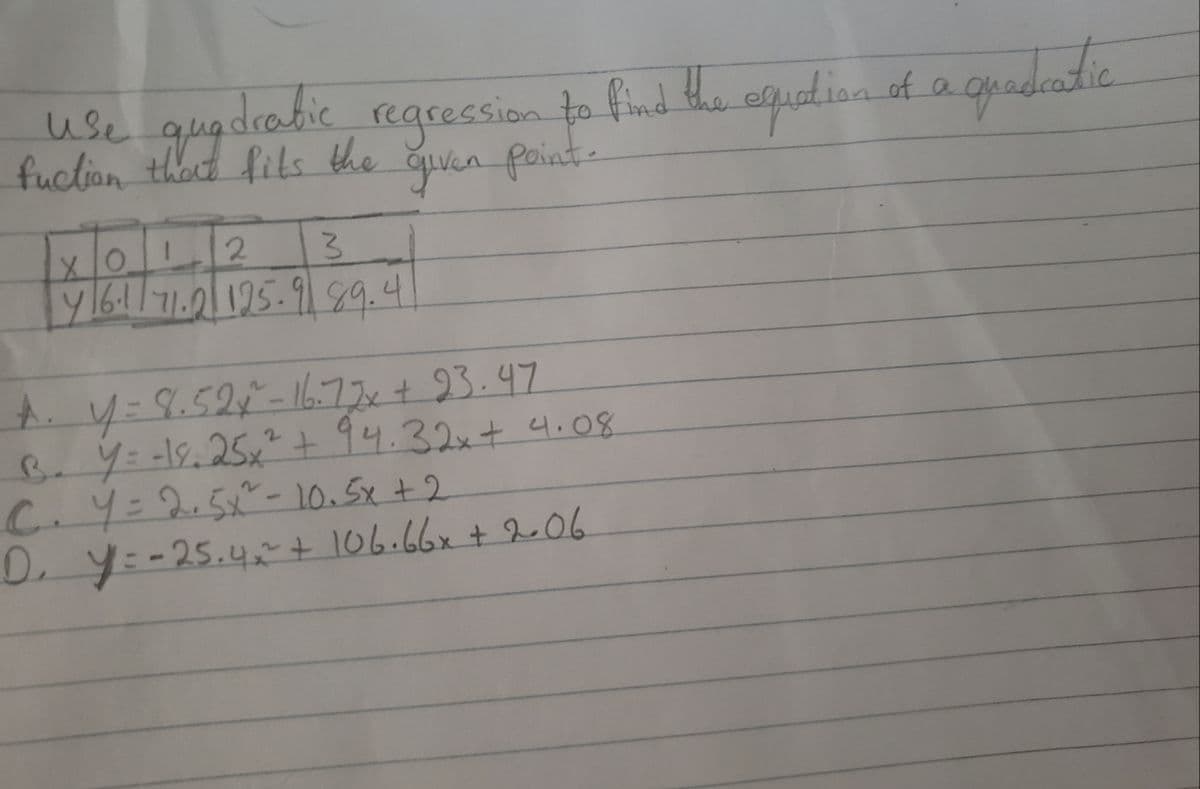 use quadratic regression to find the equation of a quadratic
fuction that fits the given point.
x 0 1 2 3
y 6.1 71.2 125.9 89.4
A. y = 8.52x² - 16.72x + 23.47
B. y = -18.25x² + 94.32x + 4.08
C. y = 2.5x² - 10.5x + 2
D. y = -25.4x² + 106.66x + 2.06